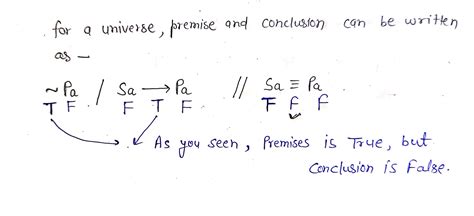 for a universe, premise and conclusion can be written
as –
~Pa / Sa → Pa // Sa ≡ Pa
T F F T F F F F
. As you seen, Premises is True, but
Conclusion is False.